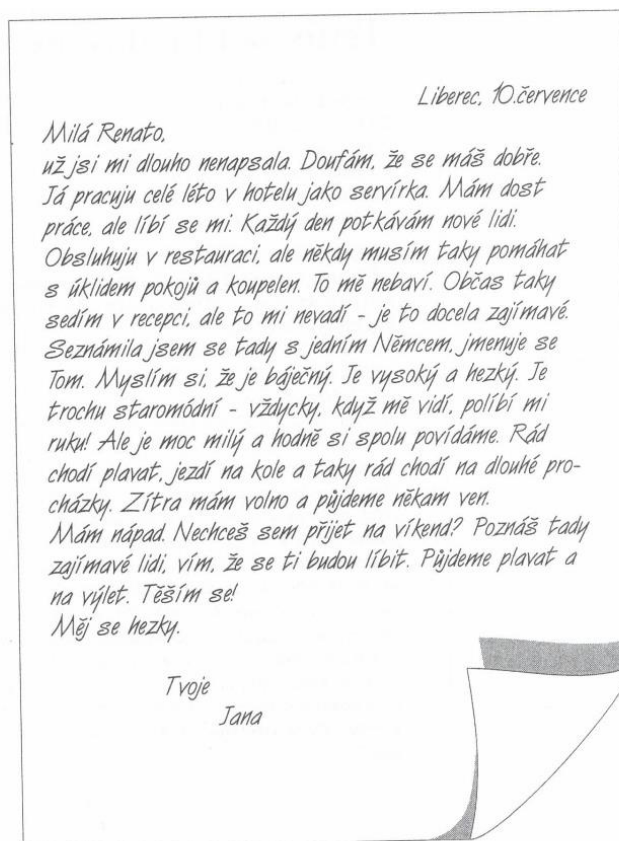 Liberec, 10.července
Milá Renato,
už jsi mi dlouho nenapsala. Doufám, že se máš dobře.
Já pracuju celé léto v hotelu jako servírka. Mám dost
práce, ale líbí se mi. Každý den potkávám nové lidi.
Obsluhuju v restauraci, ale někdy musím taky pomáhat
s úklidem pokojů a koupelen. To mě nebaví. Občas taky
sedím v recepci, ale to mi nevadí - je to docela zajímavé.
Seznámila jsem se tady s jedním Němcem, jmenuje se
Tom. Myslím si, že je báječný. Je vysoký a hezký. Je
trochu staromódní - vždycky, když mě vidí, políbí mi
ruku! Ale je moc milý a hodně si spolu povídáme. Rád
chodí plavat, jezdí na kole a taky rád chodí na dlouhé pro-
cházky. Zítra mám volno a půjdeme někam ven.
Mám nápad. Nechceš sem přijet na víkend? Poznáš tady
zajímavé lidi, vím, že se ti budou líbit. Půjdeme plavat a
na výlet. Těším se!
Měj se hezky.
Tvoje
Jana